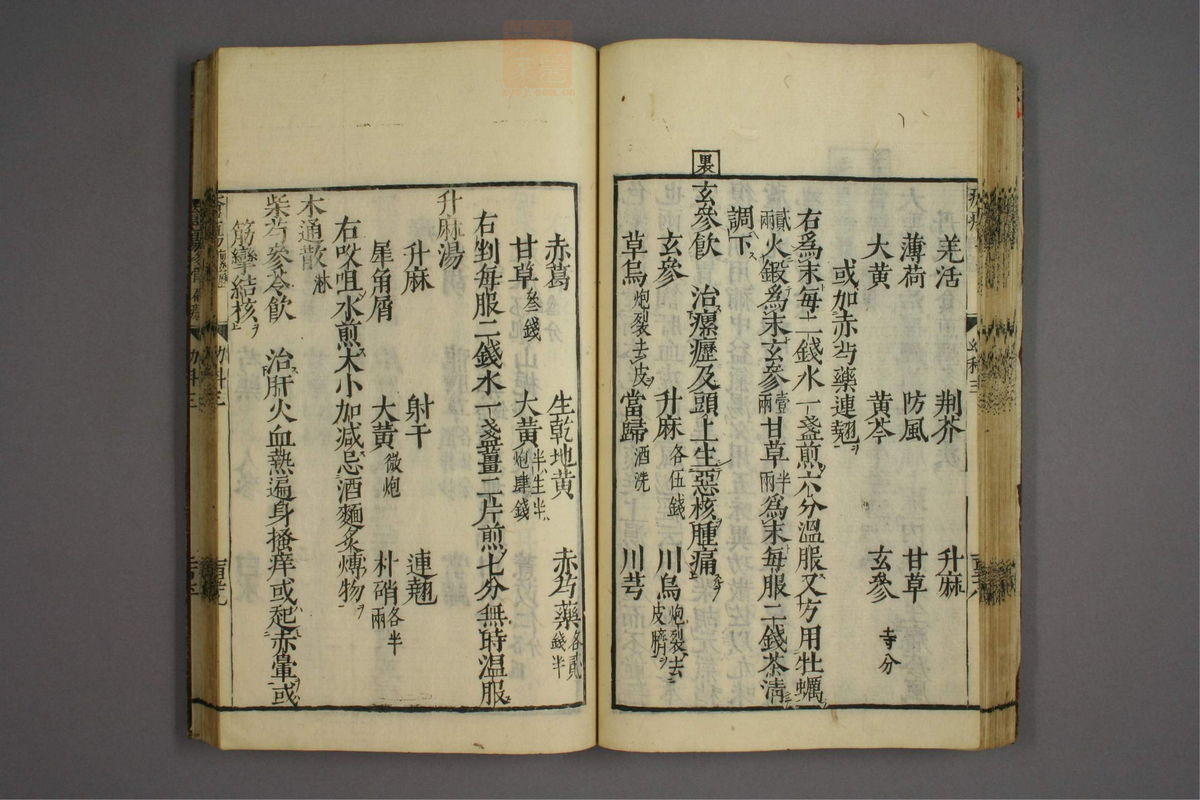 羌活 荆芥 升麻
薄荷 防風 甘草
大黄 黄芩 玄參 寺分
或加赤芍藥連翹ヲ
右爲末每二錢水一盞煎六分溫服又方用牡蠣
貳兩火鍛爲末玄參壹兩甘草半兩爲末每服二錢茶清
調下
裏
玄參飲 治瘰癧及頭上生惡核腫痛
玄參 升麻各伍錢 川烏炮裂去皮臍ヲ
草烏炮裂去皮ヲ 當歸酒洗 川芎
赤葛 生乾地黄 赤芍藥各貳錢半
甘草叄錢 大黄半生半炮肆錢
右剉每服二錢水一盞薑二片煎七分無時温服
升麻湯
升麻 射干 連翹
犀角屑 大黃微炮 朴硝各半兩
右㕮咀水煎大小加减忌酒麵炙煿物ヲ
木通散淋
柴芍參苓飲 治肝火血熱遍身搔痒或起赤暈或
筋攣結核ヲ
幼科三